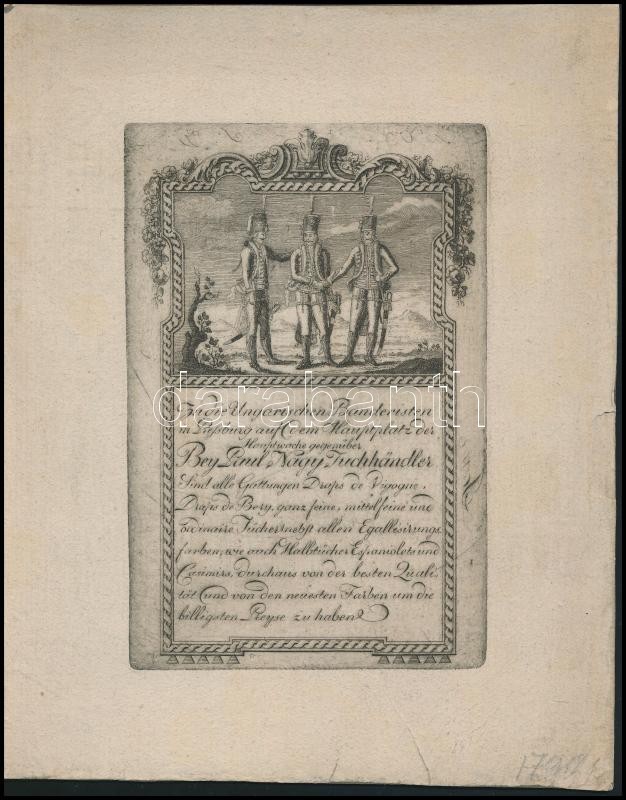 die Ungarischen Banderisten
in Presburg auf dem Hauptplatz der
Hauptwache gegenüber
Bey Paul Nagy Tuchhändler
Sind alle Gattungen Draps de Vigogne,
Draps de Bery, ganz feine, mittelfeine und
ordinaire Tücher nebst allen Egallisirungs
farben, wie auch Halbtücher Espaniolets und
Casimirs, durchaus von der besten Quali,
tät und von den neuesten Farben um die
billigsten Preyse zu haben
darabanth